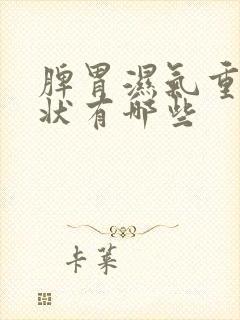 脾胃濕氣重
狀有哪些
卡萊